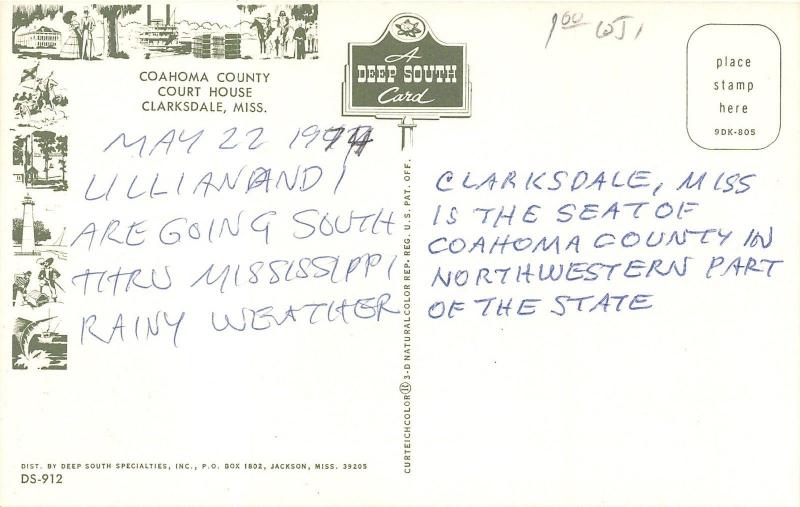 COAHOMA COUNTY
COURT HOUSE
CLARKSDALE, MISS.
A
DEEP SOUTH
Card
1.00
place
stamp
here
9DK-805
MAY 22 1974
LILLIAN AND I
ARE GOING SOUTH
THRU MISSISSIPPI
RAINY WEATHER
CURTEICHCOLOR 3-D NATURAL COLOR REP. REG. U.S. PAT. OFF.
CLARKSDALE, MISS
IS THE SEAT OF
COAHOMA COUNTY IN
NORTHWESTERN PART
OF THE STATE
DIST. BY DEEP SOUTH SPECIALTIES, INC., P.O. BOX 1802, JACKSON, MISS. 39205
DS-912